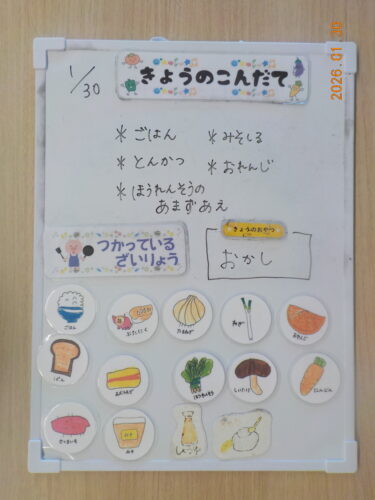 2026.01.30
1/30
きょうのこんだて
* ごはん
* みそしる
* とんかつ
* おれんじ
* ほうれんそうの
あまずあえ
つかっている
ざいりょう
きょうのおやつ
おかし
ごはん
ぶたにく
たまねぎ
ねぎ
おれんじ
ぱん
ほうれんそう
しいたけ
にんじん
さつまいも
みそ